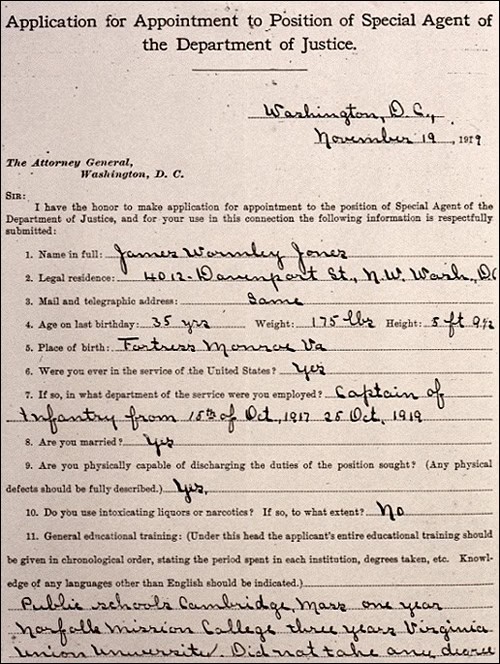 Application for Appointment to Position of Special Agent of
the Department of Justice.
Washington, D.C.,
November 19, 1919
The Attorney General,
Washington, D. C.
SIR:
I have the honor to make application for appointment to the position of Special Agent of the
Department of Justice, and for your use in this connection the following information is respectfully
submitted:
1. Name in full: James Wormley Jones
2. Legal residence: 4012-Davenport St., N.W. Wash., DC
3. Mail and telegraphic address: Same
4. Age on last birthday: 35 yrs Weight: 175 lbs Height: 5 ft 9½
5. Place of birth: Fortress Monroe Va
6. Were you ever in the service of the United States? Yes
7. If so, in what department of the service were you employed? Captain of
Infantry from 15th of Oct, 1917 25 Oct, 1919
8. Are you married? Yes
9. Are you physically capable of discharging the duties of the position sought? (Any physical
defects should be fully described.) Yes,
10. Do you use intoxicating liquors or narcotics? If so, to what extent? No
11. General educational training: (Under this head the applicant's entire educational training should
be given in chronological order, stating the period spent in each institution, degrees taken, etc. Knowl-
edge of any languages other than English should be indicated.)
Public schools Cambridge, Mass one year
Norfolk Mission College three years Virginia
Union University Did not take any degree